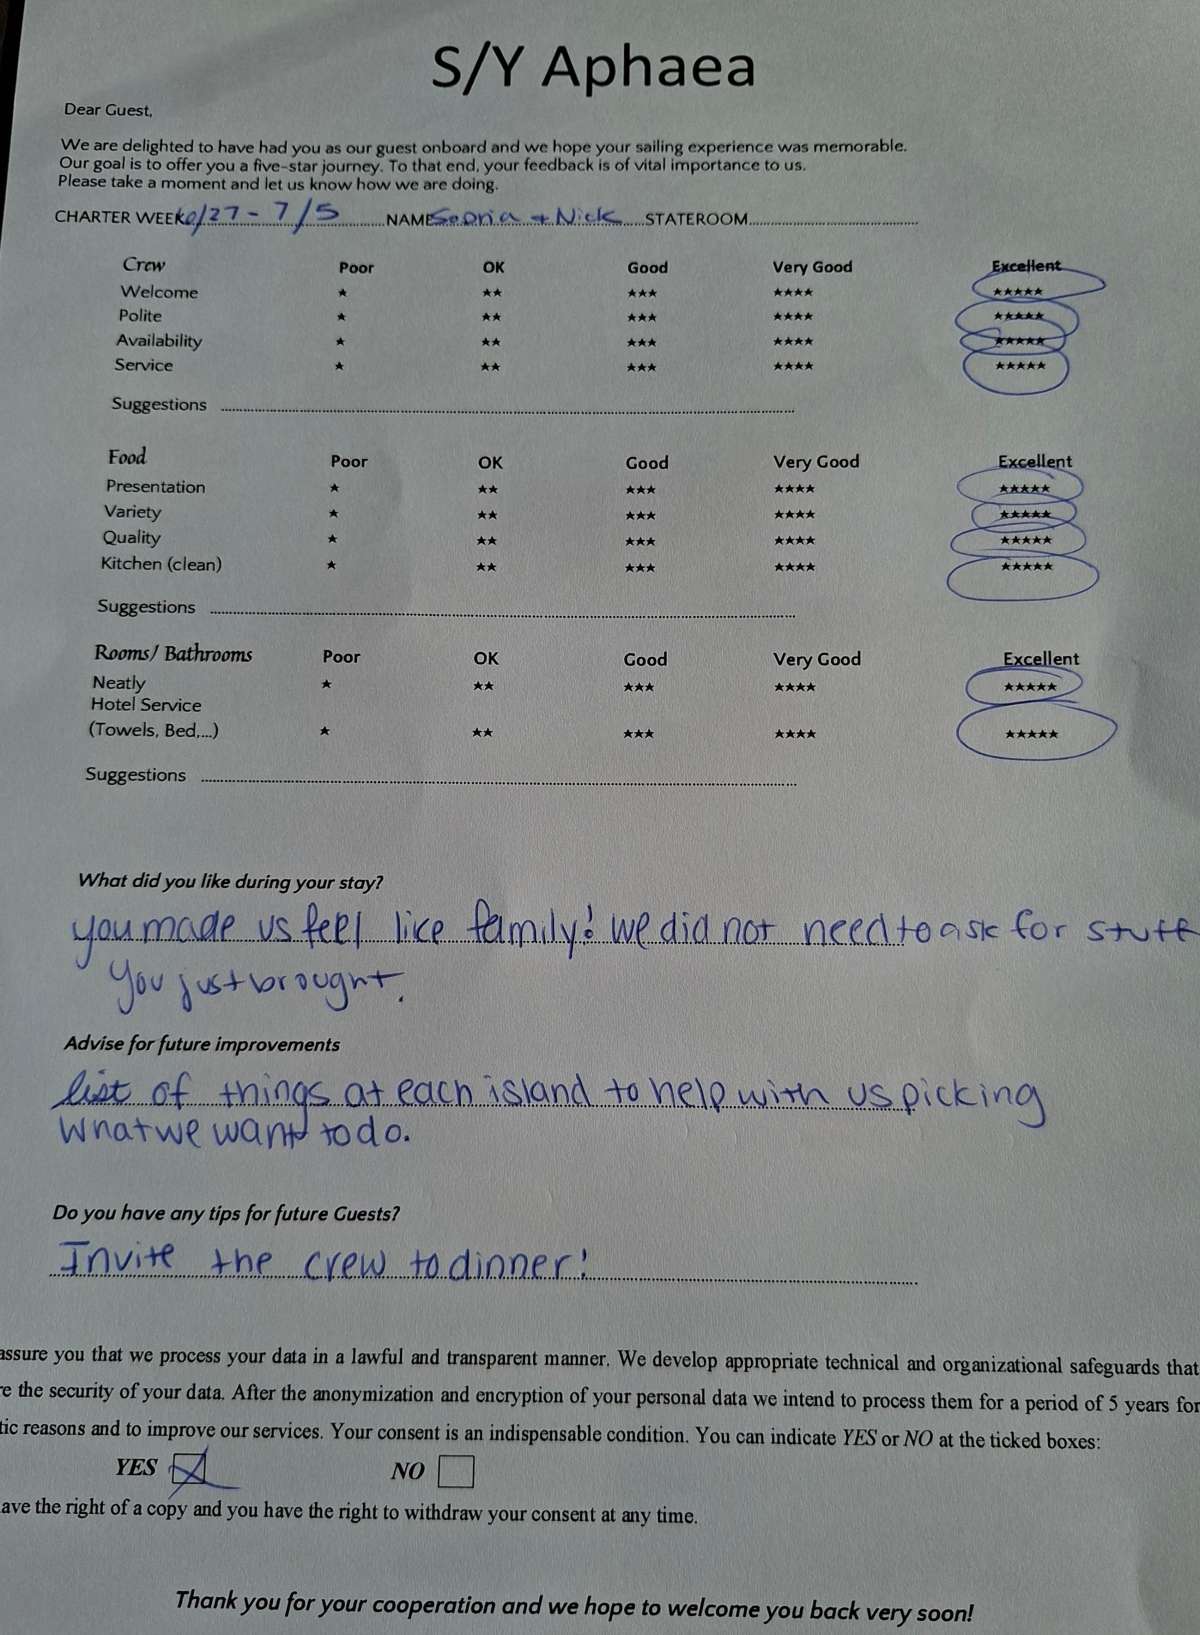 S/Y Aphaea
Dear Guest,
We are delighted to have had you as our guest onboard and we hope your sailing experience was memorable.
Our goal is to offer you a five-star journey. To that end, your feedback is of vital importance to us.
Please take a moment and let us know how we are doing.
CHARTER WEEK 6/27 - 7/5 NAME + Nick STATEROOM
Crew Poor OK Good Very Good Excellent
Welcome ★ ★★ ★★★ ★★★★ ★★★★★
Polite ★ ★★ ★★★ ★★★★ ★★★★★
Availability ★ ★★ ★★★ ★★★★ ★★★★★
Service ★ ★★ ★★★ ★★★★ ★★★★★
Suggestions
Food Poor OK Good Very Good Excellent
Presentation ★ ★★ ★★★ ★★★★ ★★★★★
Variety ★ ★★ ★★★ ★★★★ ★★★★★
Quality ★ ★★ ★★★ ★★★★ ★★★★★
Kitchen (clean) ★ ★★ ★★★ ★★★★ ★★★★★
Suggestions
Rooms/ Bathrooms Poor OK Good Very Good Excellent
Neatly ★ ★★ ★★★ ★★★★ ★★★★★
Hotel Service
(Towels, Bed,...) ★ ★★ ★★★ ★★★★ ★★★★★
Suggestions
What did you like during your stay?
you made us feel like family! We did not need to ask for stuff
You just brought.
Advise for future improvements
list of things at each island to help with us picking
what we want to do.
Do you have any tips for future Guests?
Invite the crew to dinner!
assure you that we process your data in a lawful and transparent manner. We develop appropriate technical and organizational safeguards that
re the security of your data. After the anonymization and encryption of your personal data we intend to process them for a period of 5 years for
tic reasons and to improve our services. Your consent is an indispensable condition. You can indicate YES or NO at the ticked boxes:
YES NO
ave the right of a copy and you have the right to withdraw your consent at any time.
Thank you for your cooperation and we hope to welcome you back very soon!